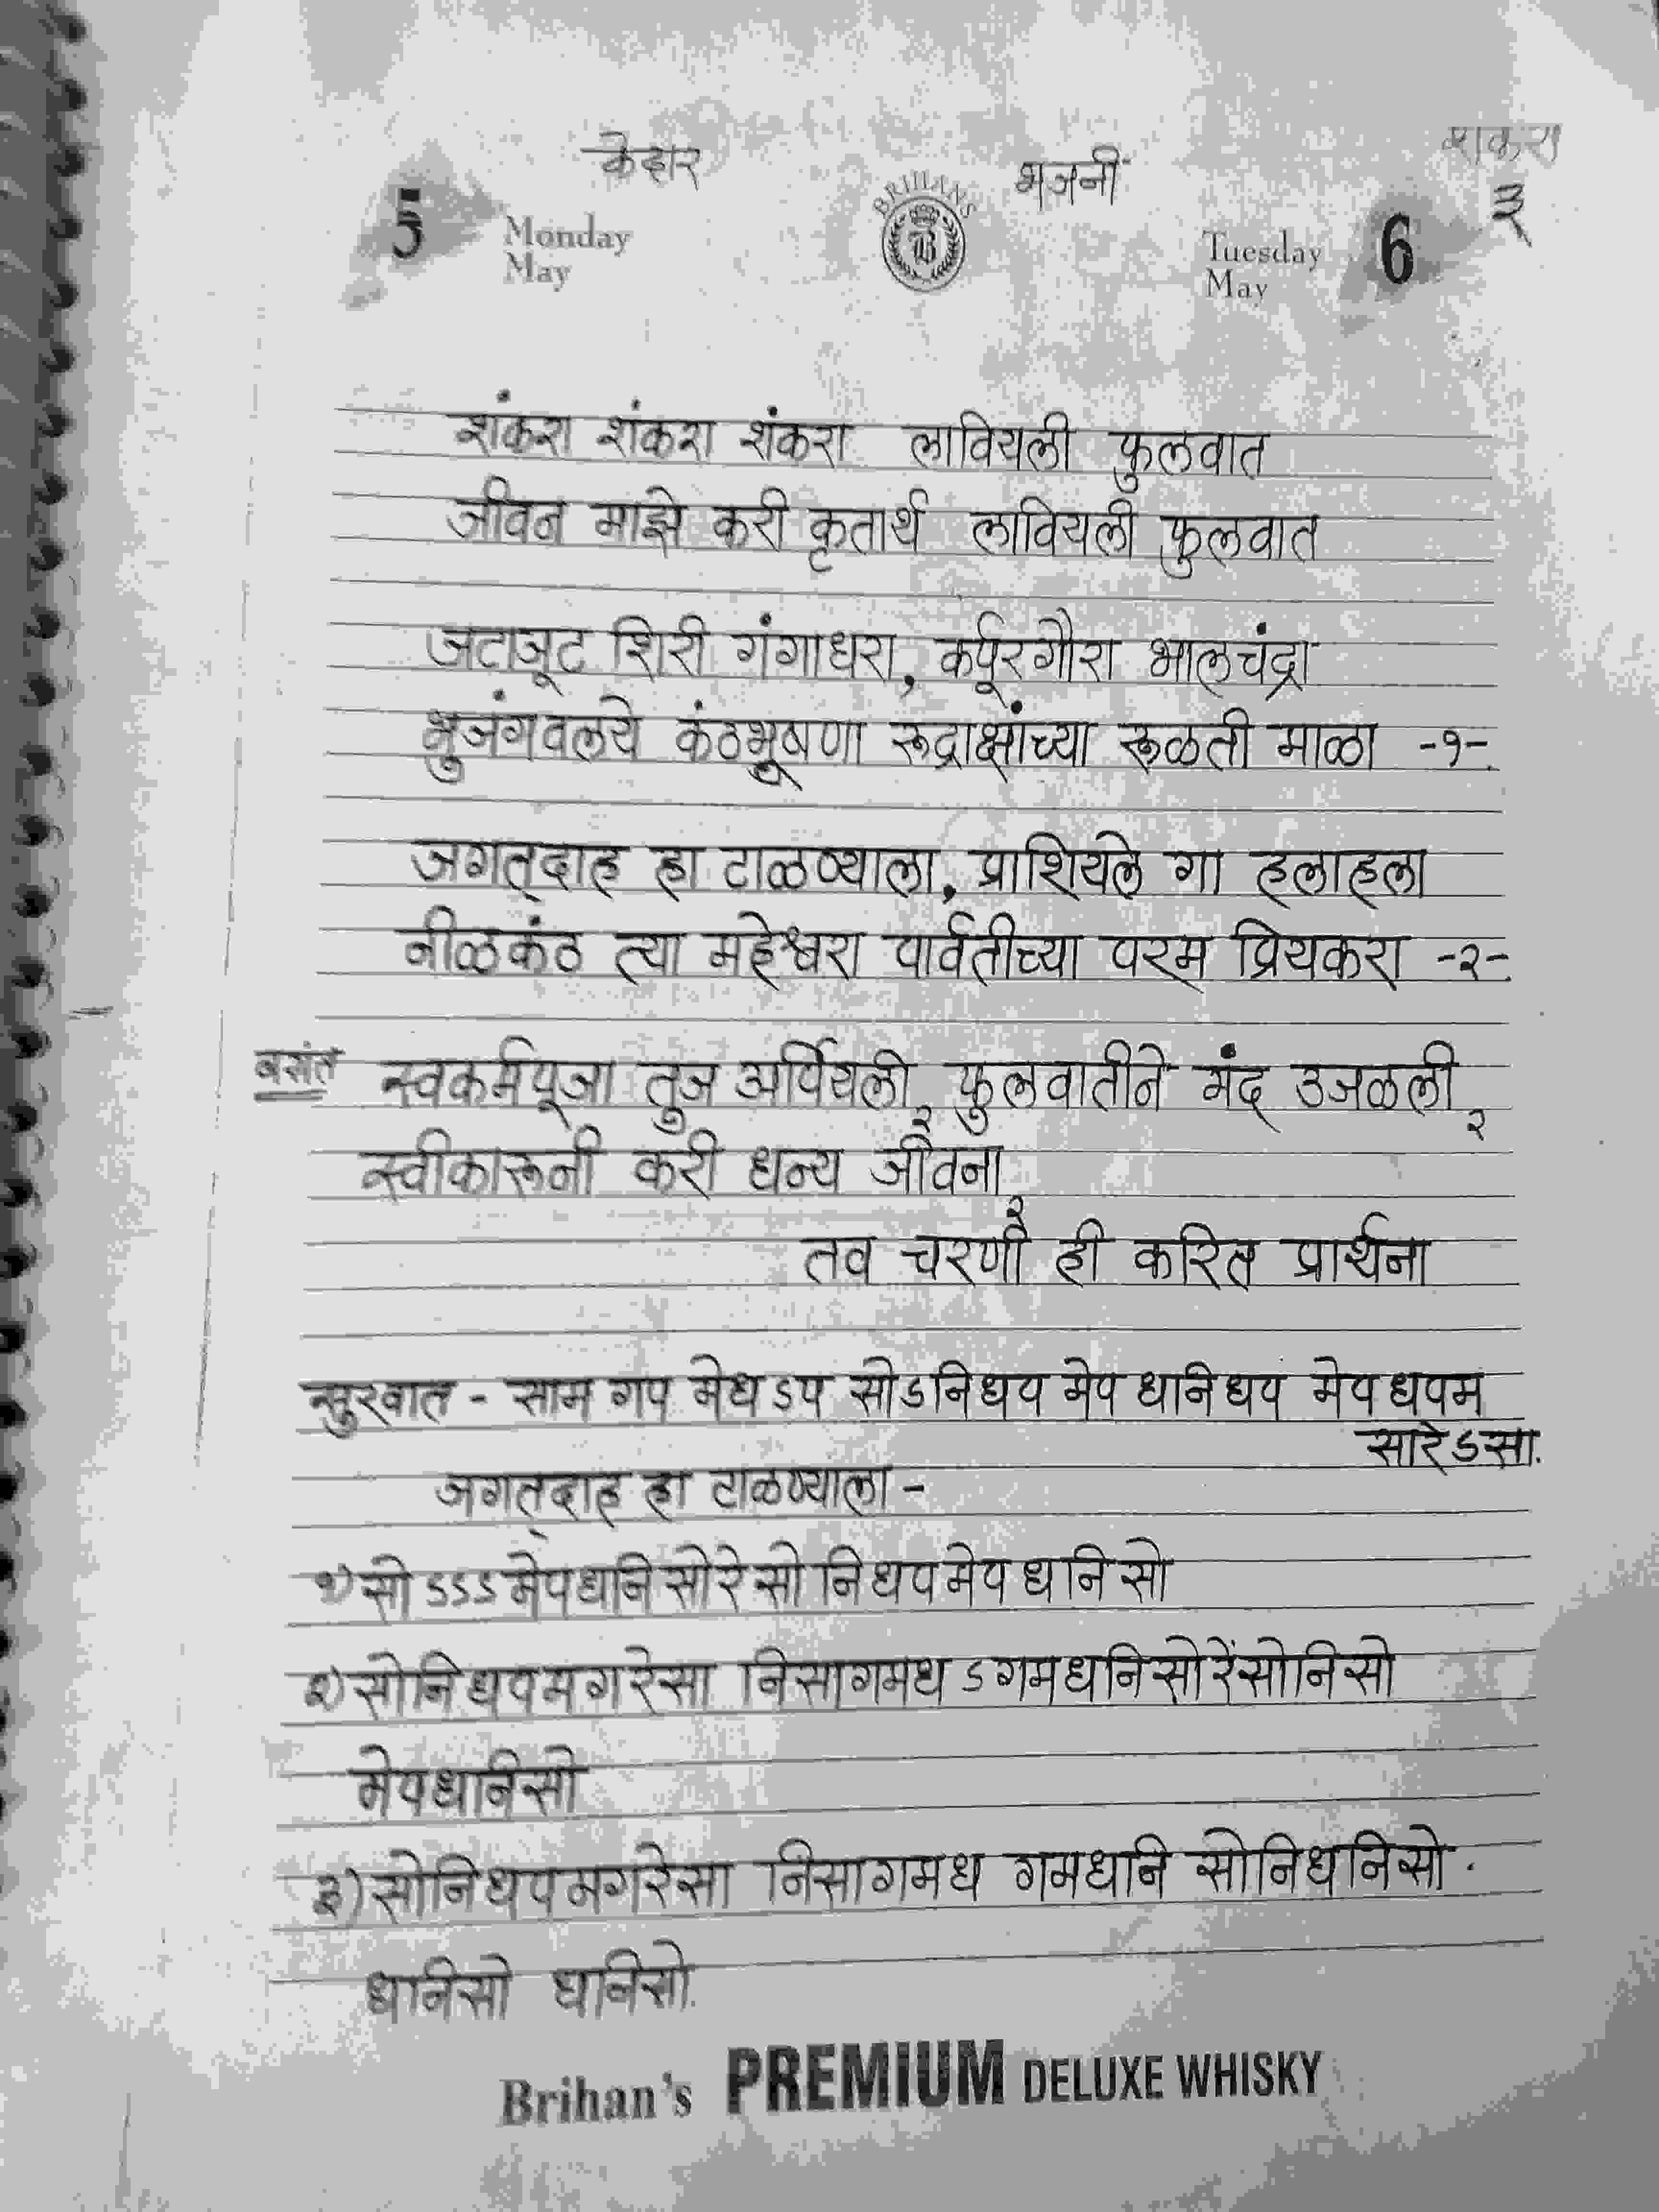 केदार भजनी
BRIHANS
5 Monday May
Tuesday May 6 ३
शंकरा शंकरा शंकरा लावियली फुलवात
जीवन माझे करी कृतार्थ लावियली फुलवात
जटाजूट शिरी गंगाधरा, कर्पूरगौरा भालचंद्रा
भुजंगवलये कंठभूषणा रूद्राक्षांच्या रूळती माळा -१-
जगत्‌दाह हा टाळण्याला, प्राशियले गा हलाहला
नीळकंठ त्या महेश्वरा पार्वतीच्या परम प्रियकरा -२-
बसंत स्वकर्मपूजा तुज अर्पियली२ फुलवातीने मंद उजळली२
स्वीकारूनी करी धन्य जीवना२
तव चरणी ही करित प्रार्थना
सुरवात - साम गप मेध ऽप सोऽनिधप मेप धानिधप मेपधपम
सारेऽसा.
जगत्‌दाह हा टाळण्याला -
१) सो ऽऽऽ मेपधनि सोरेसो निधपमेप धनिसो
२) सोनिधपमगरेसा निसागमध ऽगमधनिसोरेंसोनिसो
मेपधानिसो
३) सोनिधपमगरेसा निसागमध गमधानि सोनिधनिसो.
धानिसो धनिसो.
Brihan's PREMIUM DELUXE WHISKY